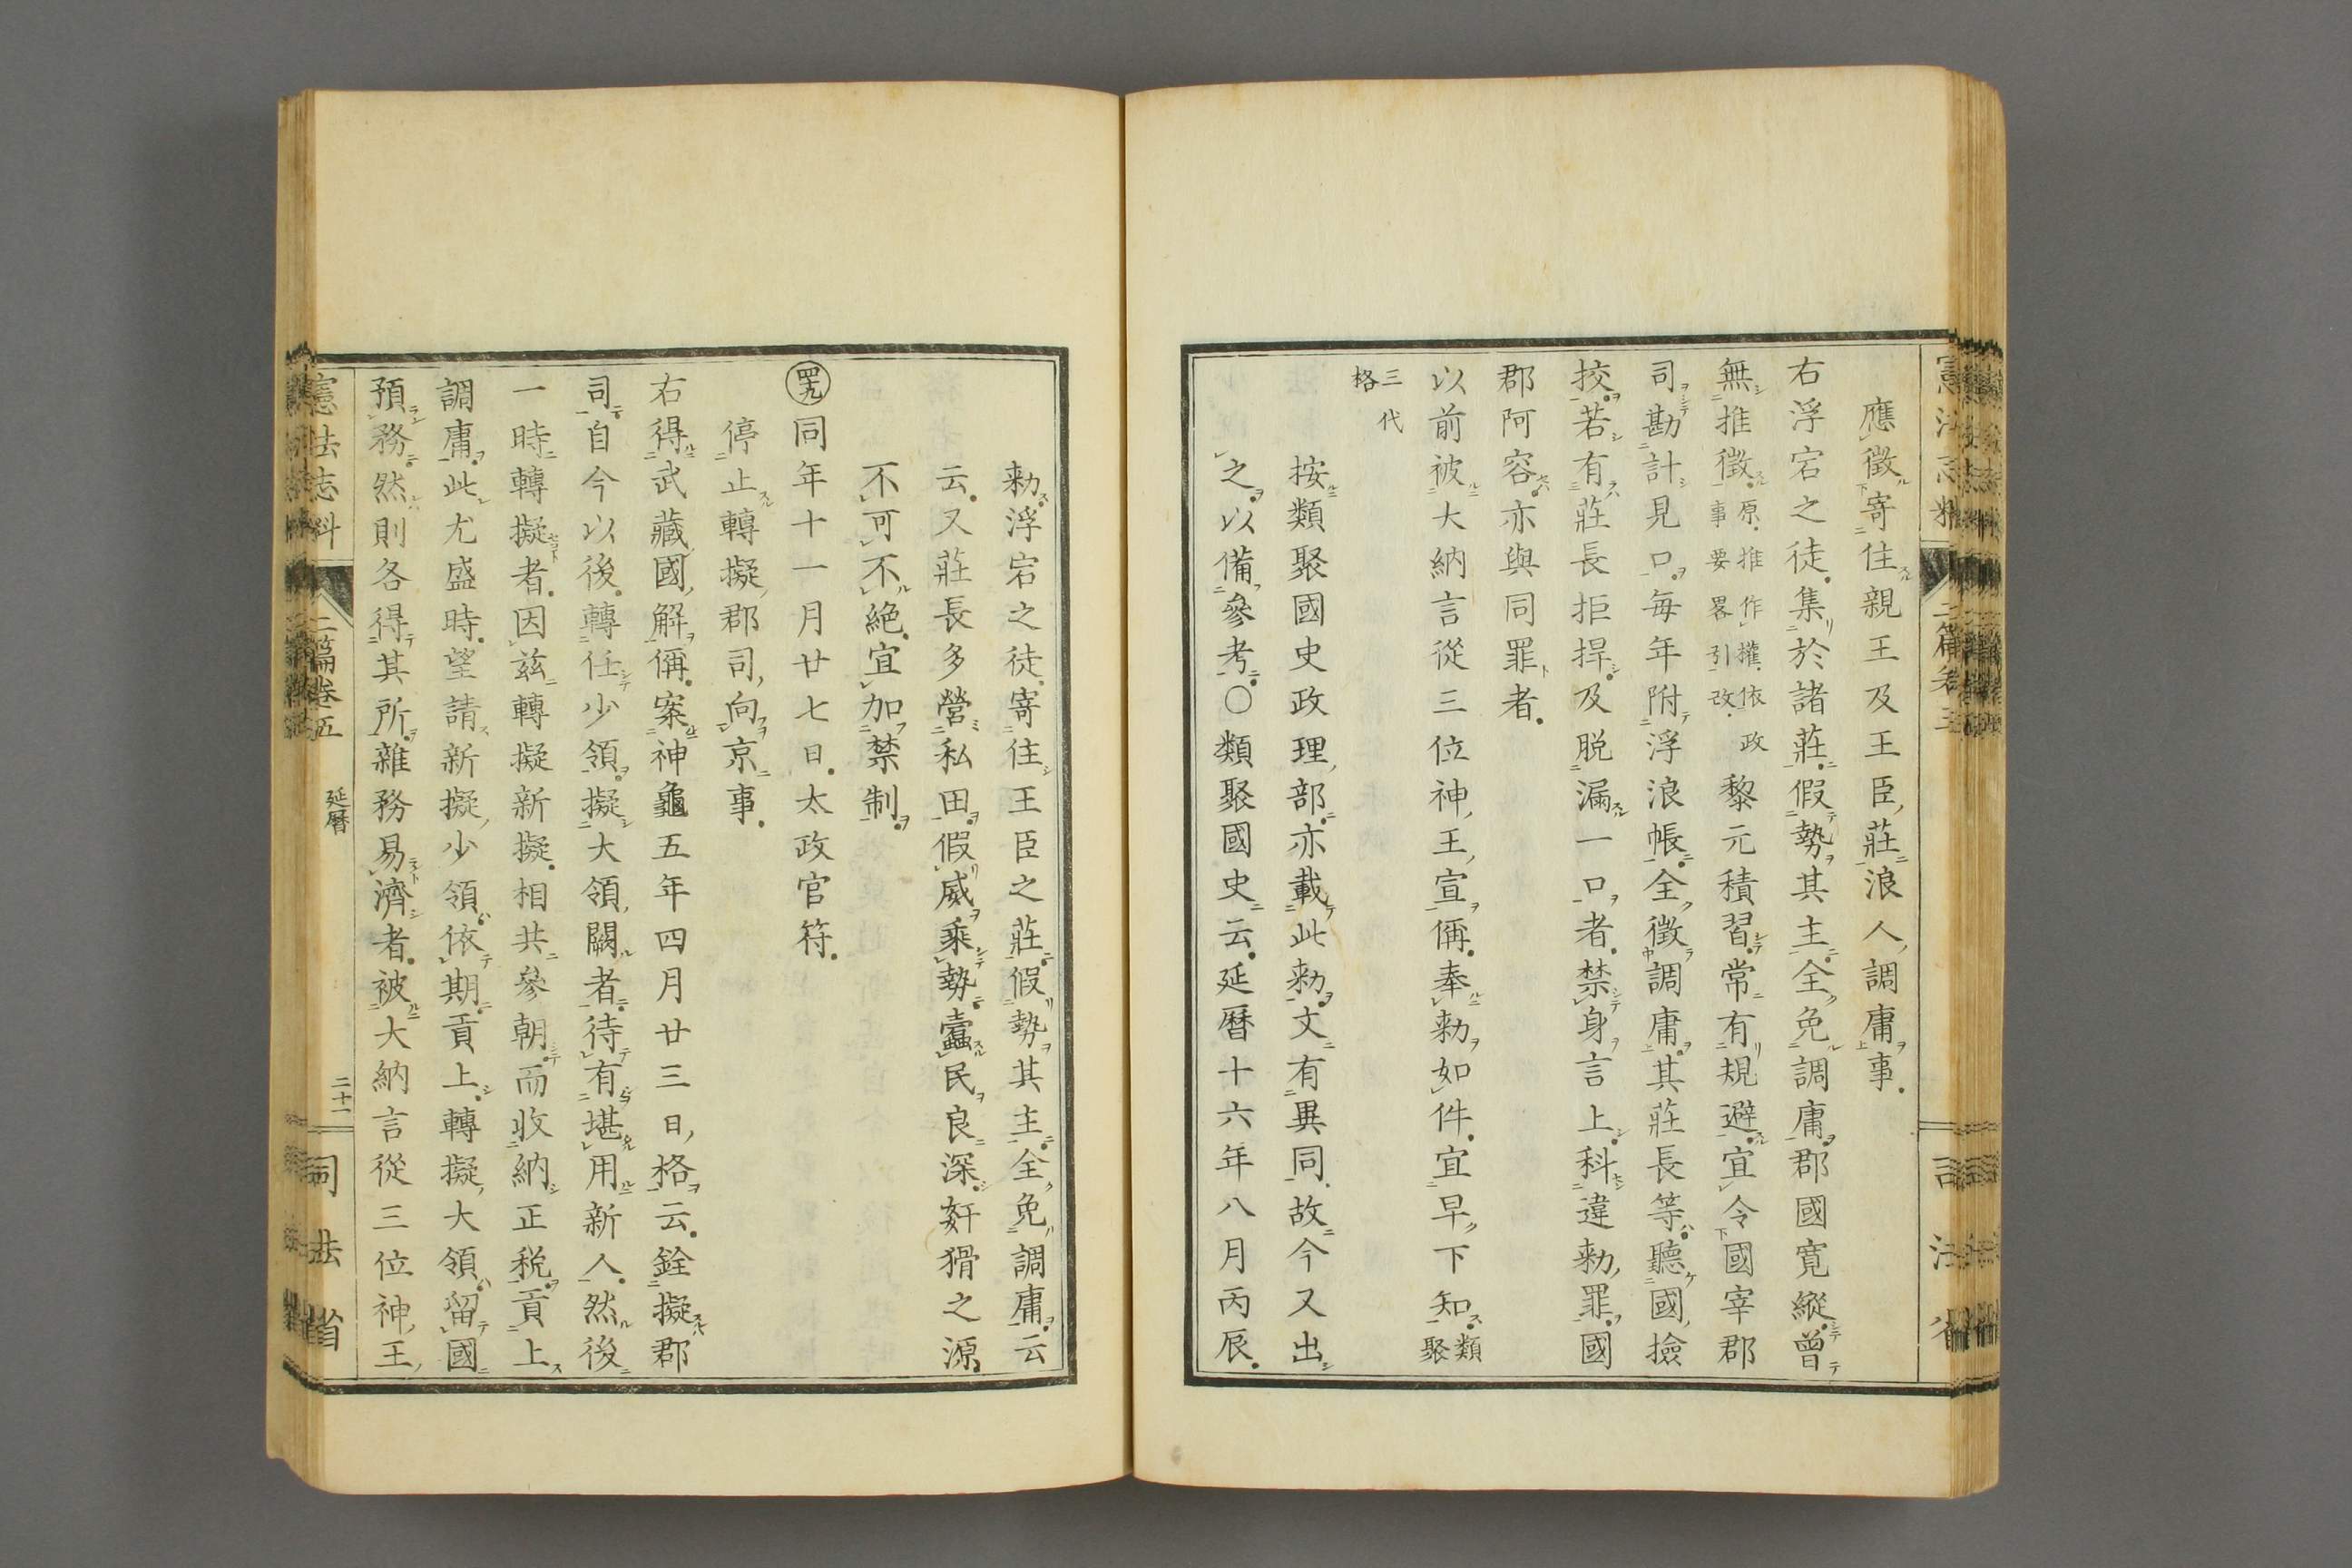 應徵寄住親王及王臣莊浪人調庸事
右浮宕之徒集於諸莊假勢其主全免調庸郡國寛縱曾
無推徵原推作擢依政事要畧引改黎元積習常有規避宜令國宰郡
司勘計見口毎年附浮浪帳全徵調庸其莊長等聽國撿
挍若有莊長拒捍及脱漏一口者禁身言上科違勅罪國
郡阿容亦與同罪者
以前被大納言從三位神王宣偁奉勅如件宜早下知類聚
三代格
按類聚國史政理部亦載此勅文有異同故今又出
之以備參考〇類聚國史云延暦十六年八月丙辰
勅浮宕之徒寄住王臣之莊假勢其主全免調庸云
云又莊長多營私田假威乘勢蠹民良深奸猾之源
不可不絕宜加禁制
四九同年十一月廿七日太政官符
停止轉擬郡司向京事
右得武藏國解偁案神龜五年四月廿三日格云銓擬郡
司自今以後轉任少領擬大領闕者待有堪用新人然後
一時轉擬者因兹轉擬新擬相共參朝而收納正税貢上
調庸此尤盛時望請新擬少領依期貢上轉擬大領留國
預務然則各得其所雜務易濟者被大納言從三位神王
憲法志料 二篇卷五 延暦 二十一 司法省